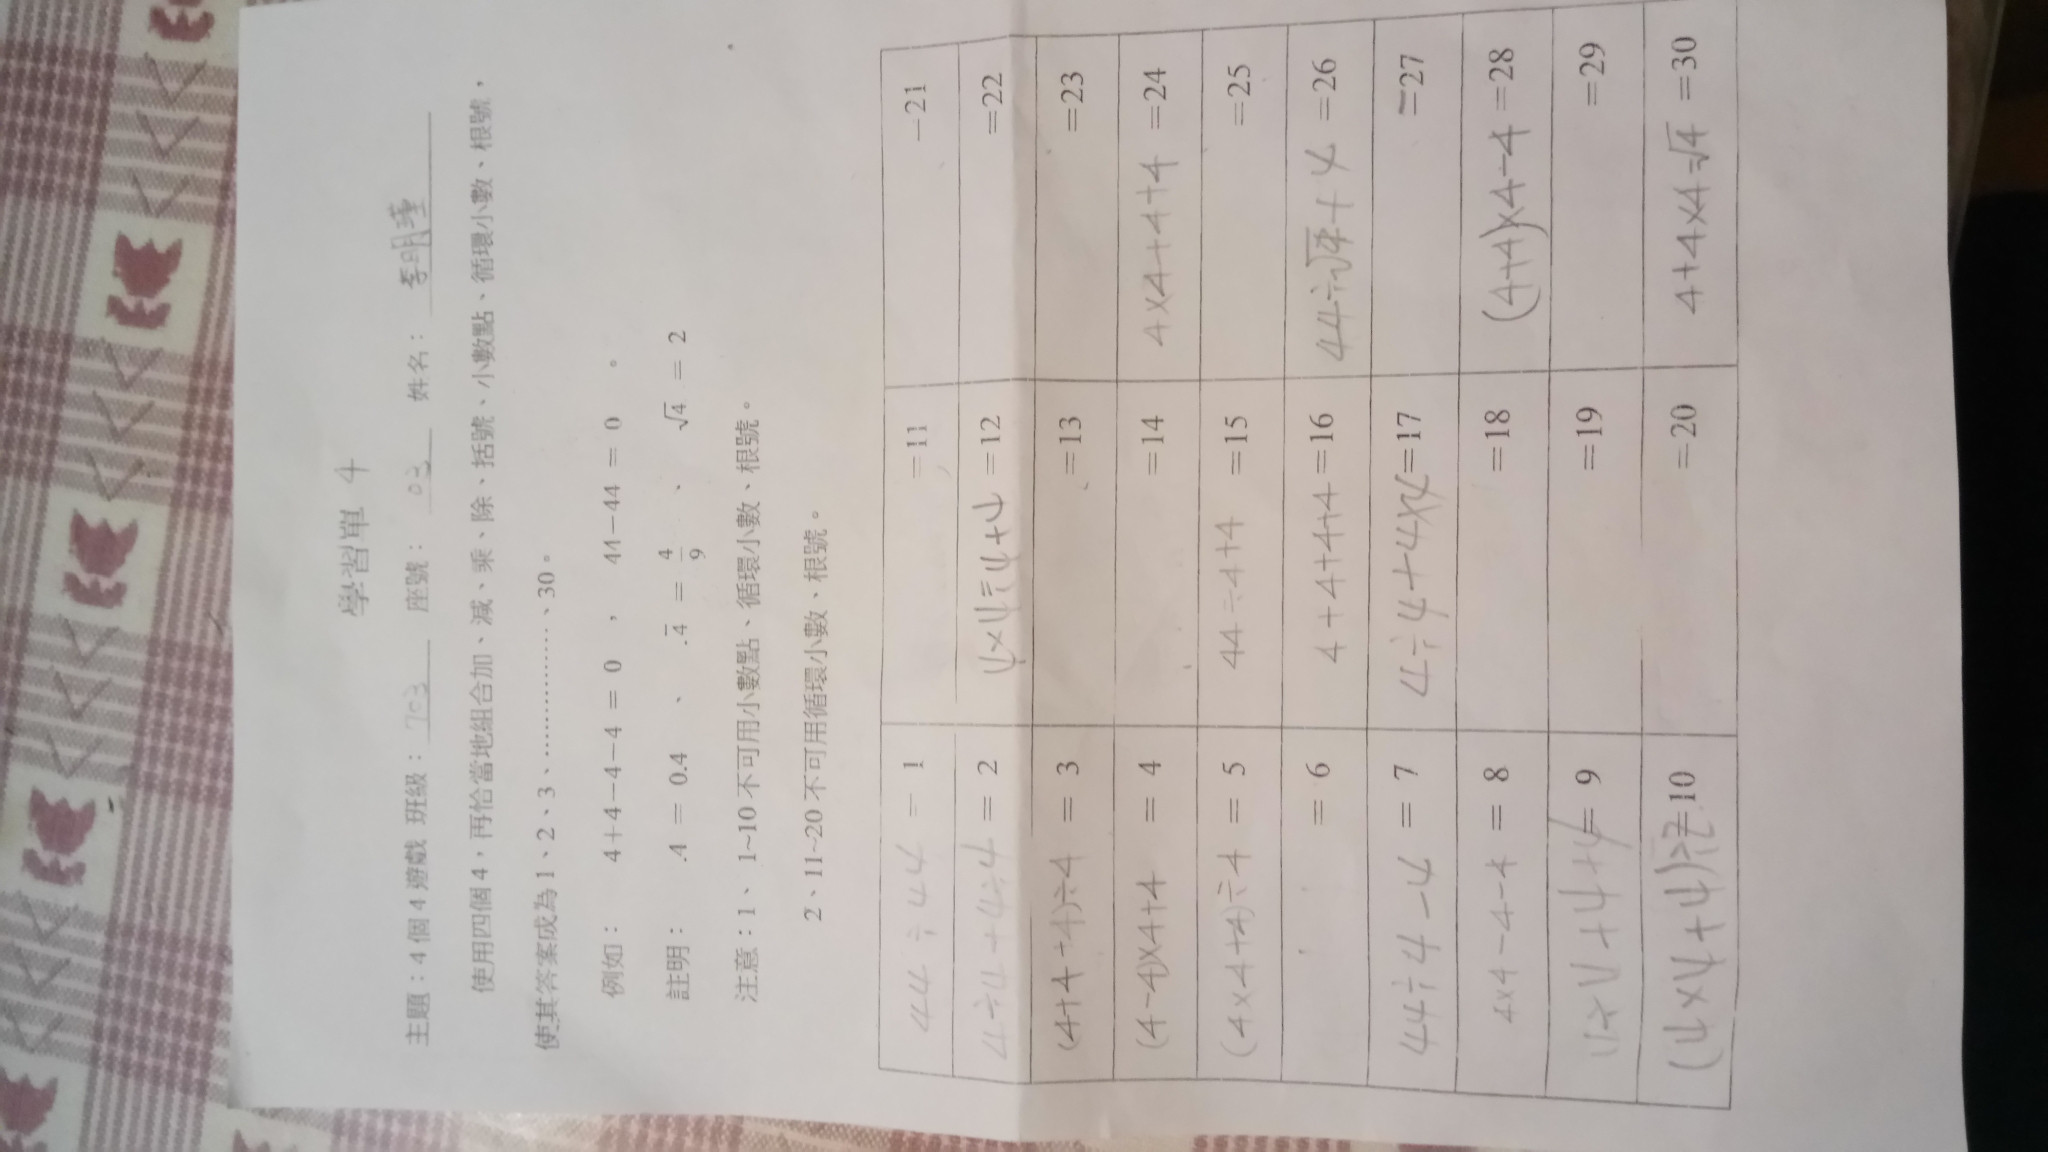 學習單 4
主題：4 個 4 遊戲 班級：703 座號：03 姓名：李明瑾
使用四個 4，再恰當地組合加、減、乘、除、括號、小數點、循環小數、根號，
使其答案成為 1、2、3、……………、30。
例如： 4+4－4－4 = 0 ， 44－44 = 0 。
註明： .4 = 0.4 、 .4̅ = 4/9 、 √4 = 2
注意：1、 1~10 不可用小數點、循環小數、根號。
2、11~20 不可用循環小數、根號。
44÷44 = 1 =11 =21
4÷4+4÷4 = 2 4×4÷4+4 =12 =22
(4+4+4)÷4 = 3 =13 =23
(4-4)×4+4 = 4 =14 4×4+4+4 =24
(4×4+4)÷4 = 5 44÷4+4 =15 =25
= 6 4+4+4+4 =16 44÷√4+4 =26
44÷4-4 = 7 4÷4+4×4 =17 =27
4×4-4-4 = 8 =18 (4+4)×4-4 =28
= 9 =19 =29
=10 =20 4+4×4 √4 =30